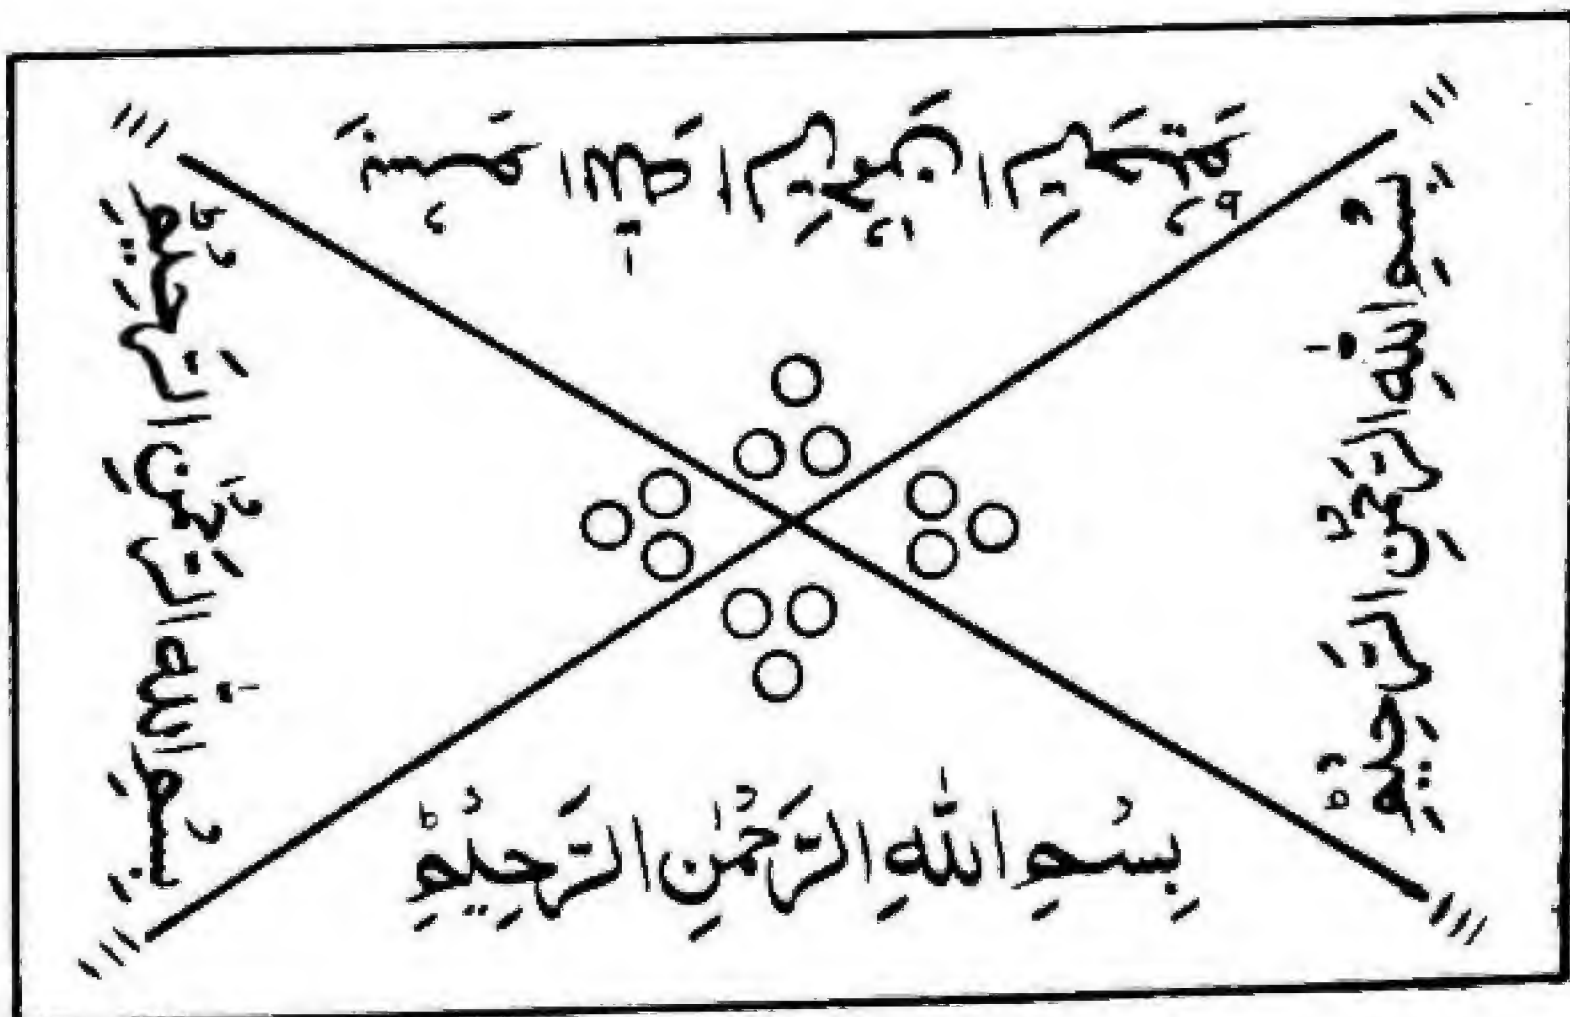 بِسْمِ اللّٰهِ الرَّحْمٰنِ الرَّحِيْمِ ط
بِسْمِ اللّٰهِ الرَّحْمٰنِ الرَّحِيْمِ ط
بِسْمِ اللّٰهِ الرَّحْمٰنِ الرَّحِيْمِ ط
بِسْمِ اللّٰهِ الرَّحْمٰنِ الرَّحِيْمِ ط